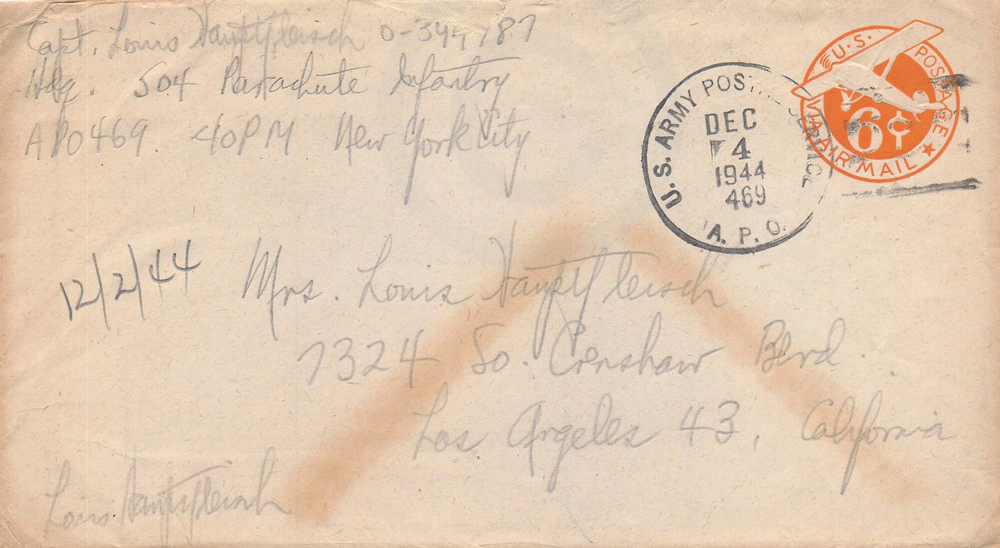 Capt. Louis Hauptfleisch O-344787
Hdq. 504 Parachute Infantry
APO 469 ℅ PM New York City
U.S. POSTAGE
6¢
VIA AIR MAIL
U.S. ARMY POSTAL SERVICE
DEC
4
1944
469
A.P.O.
12/2/44
Mrs. Louis Hauptfleisch
7324 So. Crenshaw Blvd.
Los Angeles 43, California
Louis Hauptfleisch